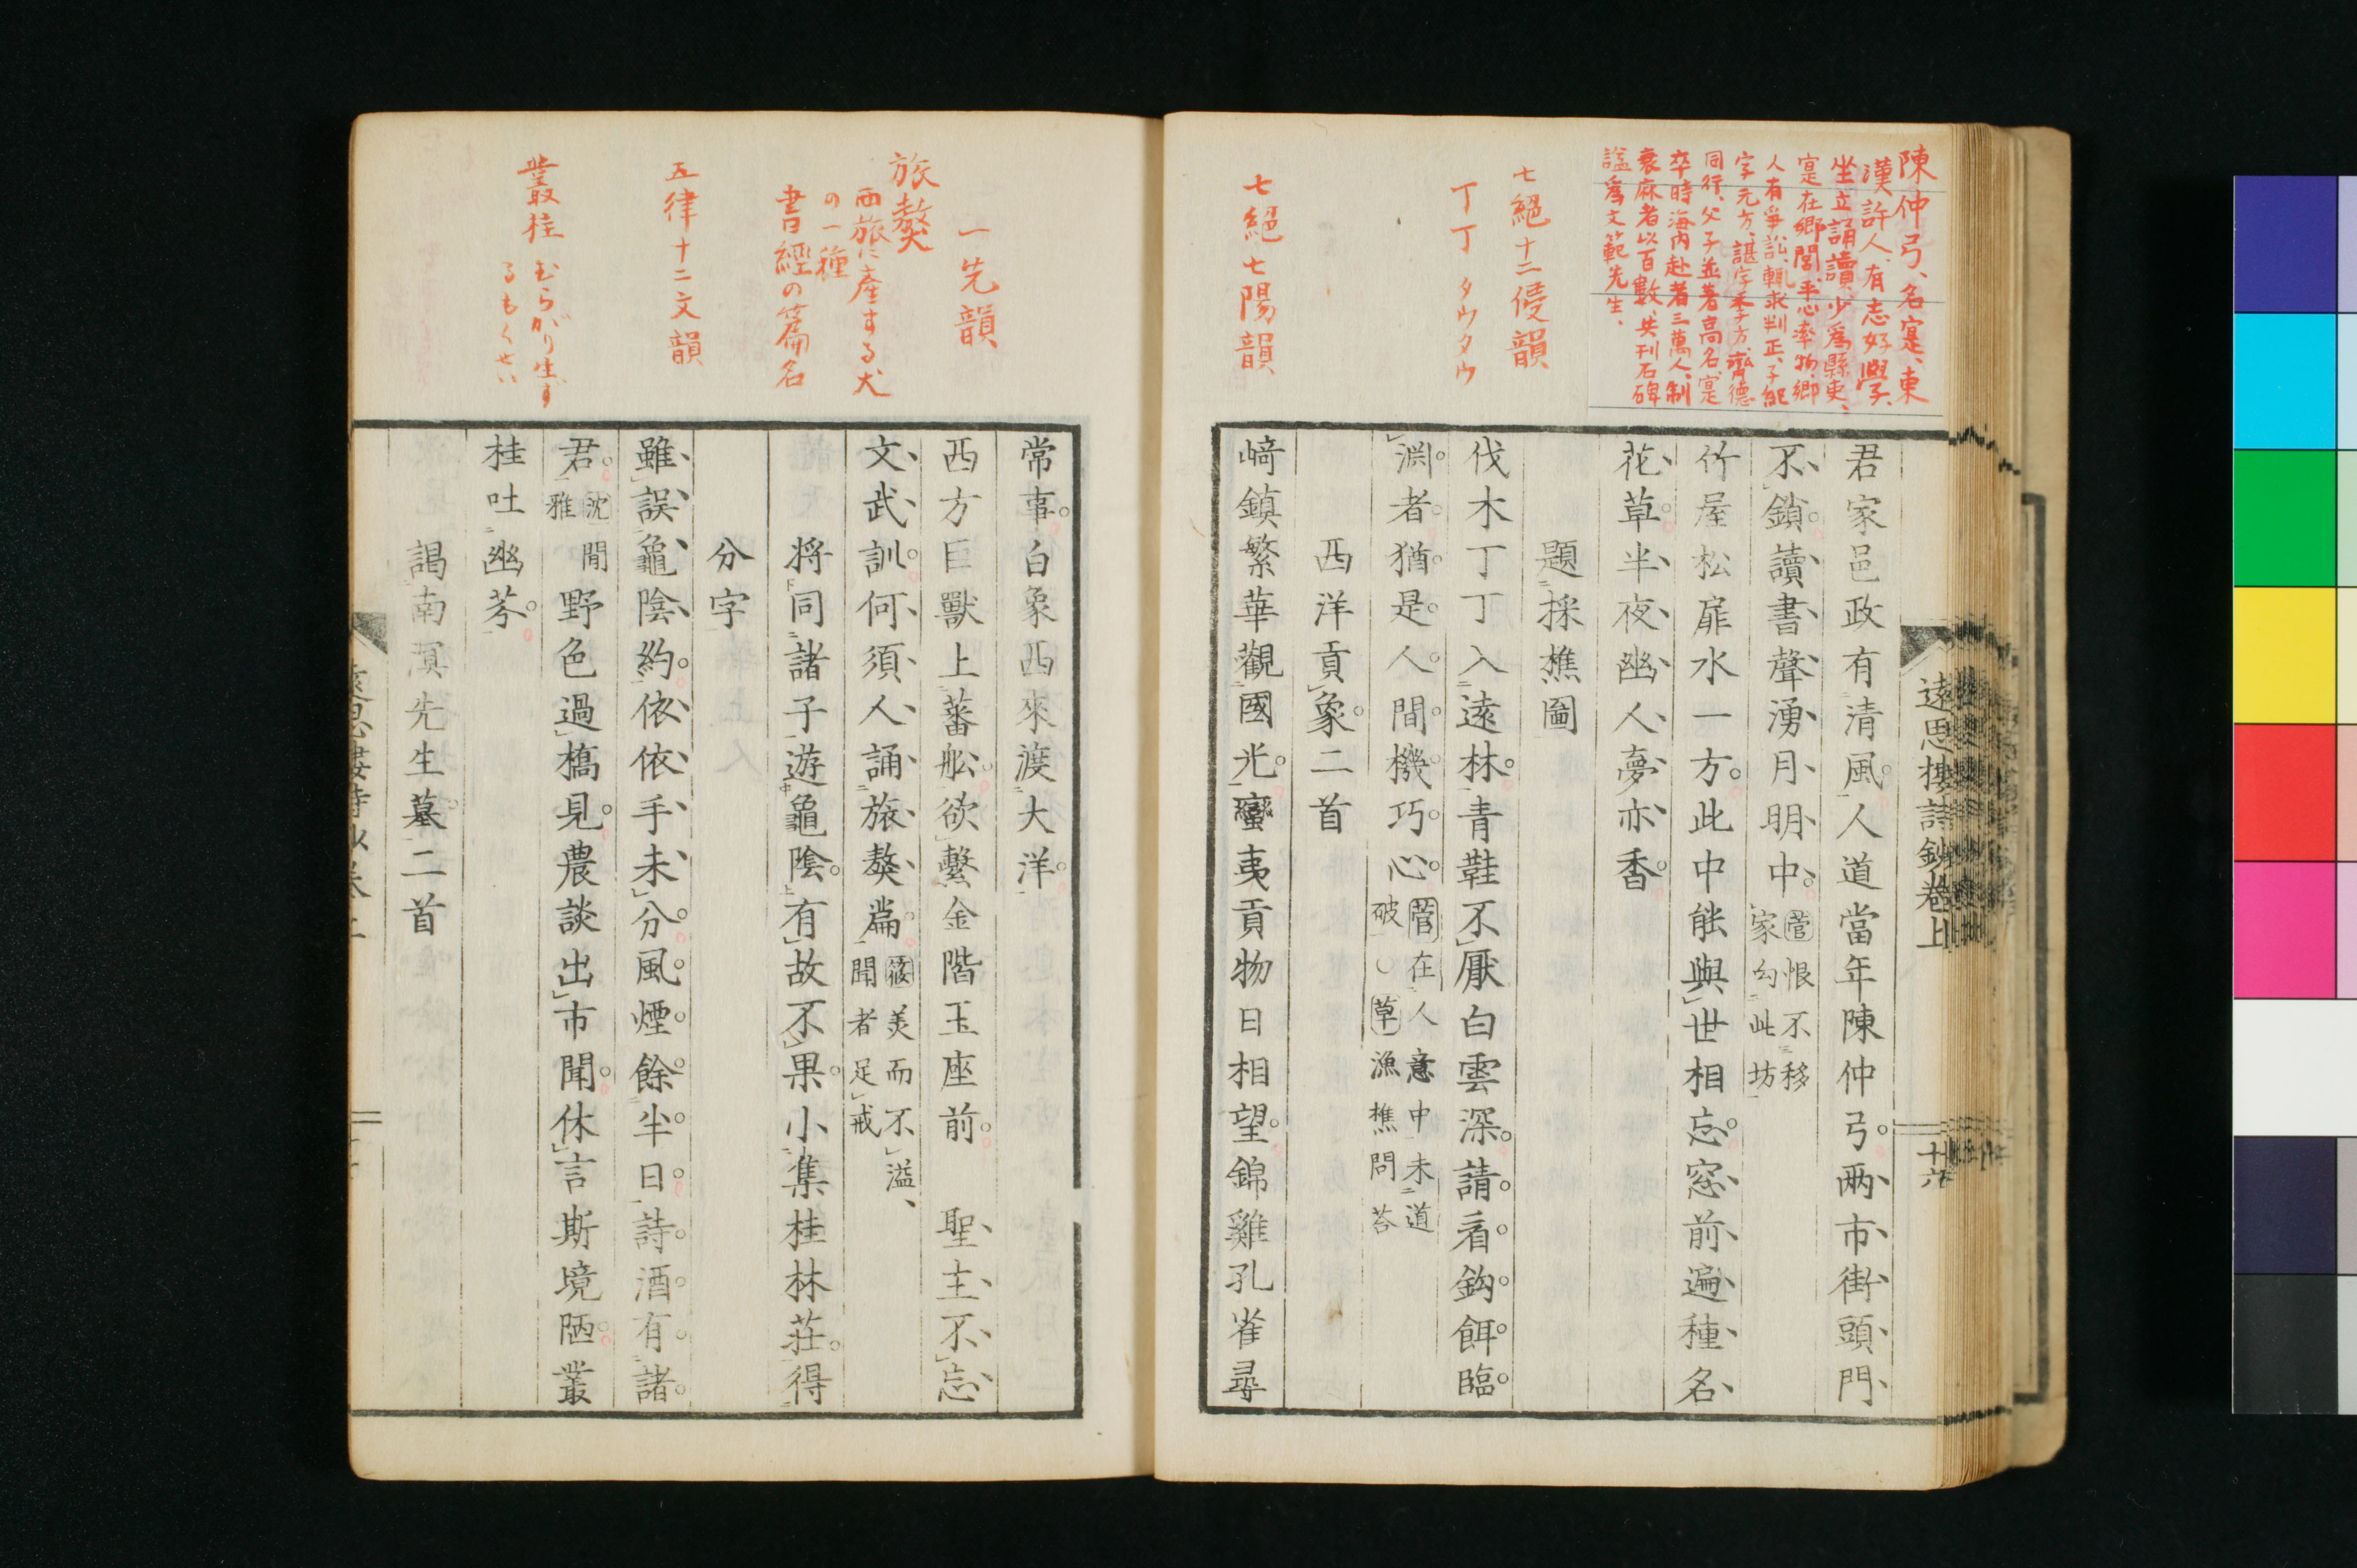 陳仲弓、名寔、東
漢許人、有志好學、
坐立誦讀、少爲縣吏、
寔在鄉閭、平心率物、鄉
人有爭訟、輒求判正、子紀
字元方、諶字季方、齊德
同行、父子並著高名、寔
卒時海內赴者三萬人、制
衰麻者以百數、共刊石碑
諡爲文範先生、
七絕十二侵韻
丁丁 タウタウ
七絕七陽韻
遠思樓詩鈔卷上
十六
君家邑政有清風。人道當年陳仲弓。兩市街頭門
不鎖。讀書聲湧月明中。菅恨不移
家勾此坊
竹屋松扉水一方。此中能與世相忘。窓前遍種名
花草。半夜幽人夢亦香。
題採樵圖
伐木丁丁入遠林。青鞋不厭白雲深。請看鈎餌臨
淵者。猶是人間機巧心。菅在人意中未道
破○草漁樵問荅
西洋貢象。二首
﨑鎮繁華觀國光。蠻夷貢物日相望。錦雞孔雀尋
一先韻
旅獒
西旅に產する犬
の一種
書經の篇名
五律十二文韻
叢桂 むらがり生ず
るもくせい
常事。白象西來渡大洋。
西方巨獸上蕃舩。欲繫金階玉座前。 聖主不忘
文武訓。何須人誦旅獒篇。筱美而不溢、
聞者足戒
將同諸子遊龜陰。有故不果。小集桂林莊。得
分字
雖誤龜陰約。依依手未分。風煙餘半日。詩酒有諸
君。沈閒
雅 野色過橋見。農談出市聞。休言斯境陋。叢
桂吐幽芬。
謁南溟先生墓。二首